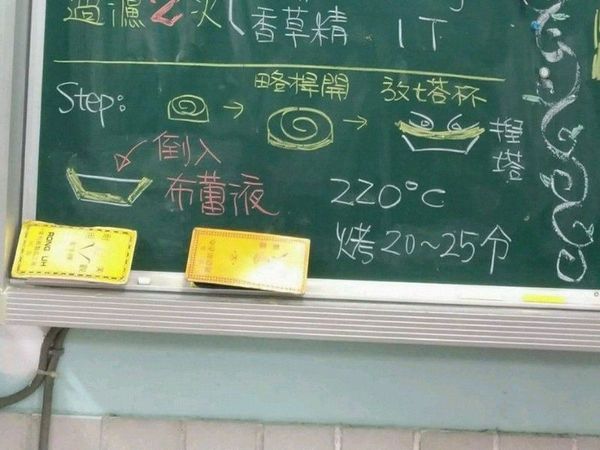 過濾2次
香草精 1T
Step:
略桿開
放塔杯
捏塔
倒入
布蕾液
220°C
烤20~25分
RONG LIH